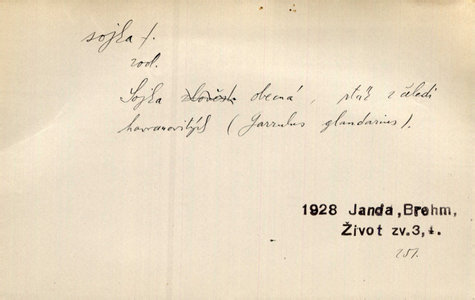 sojka f.
zool.
Sojka obecná, pták z čeledi
havranovitých (Garrulus glandarius).
1928 Janda,Brehm,
Život zv.3,1.
251.